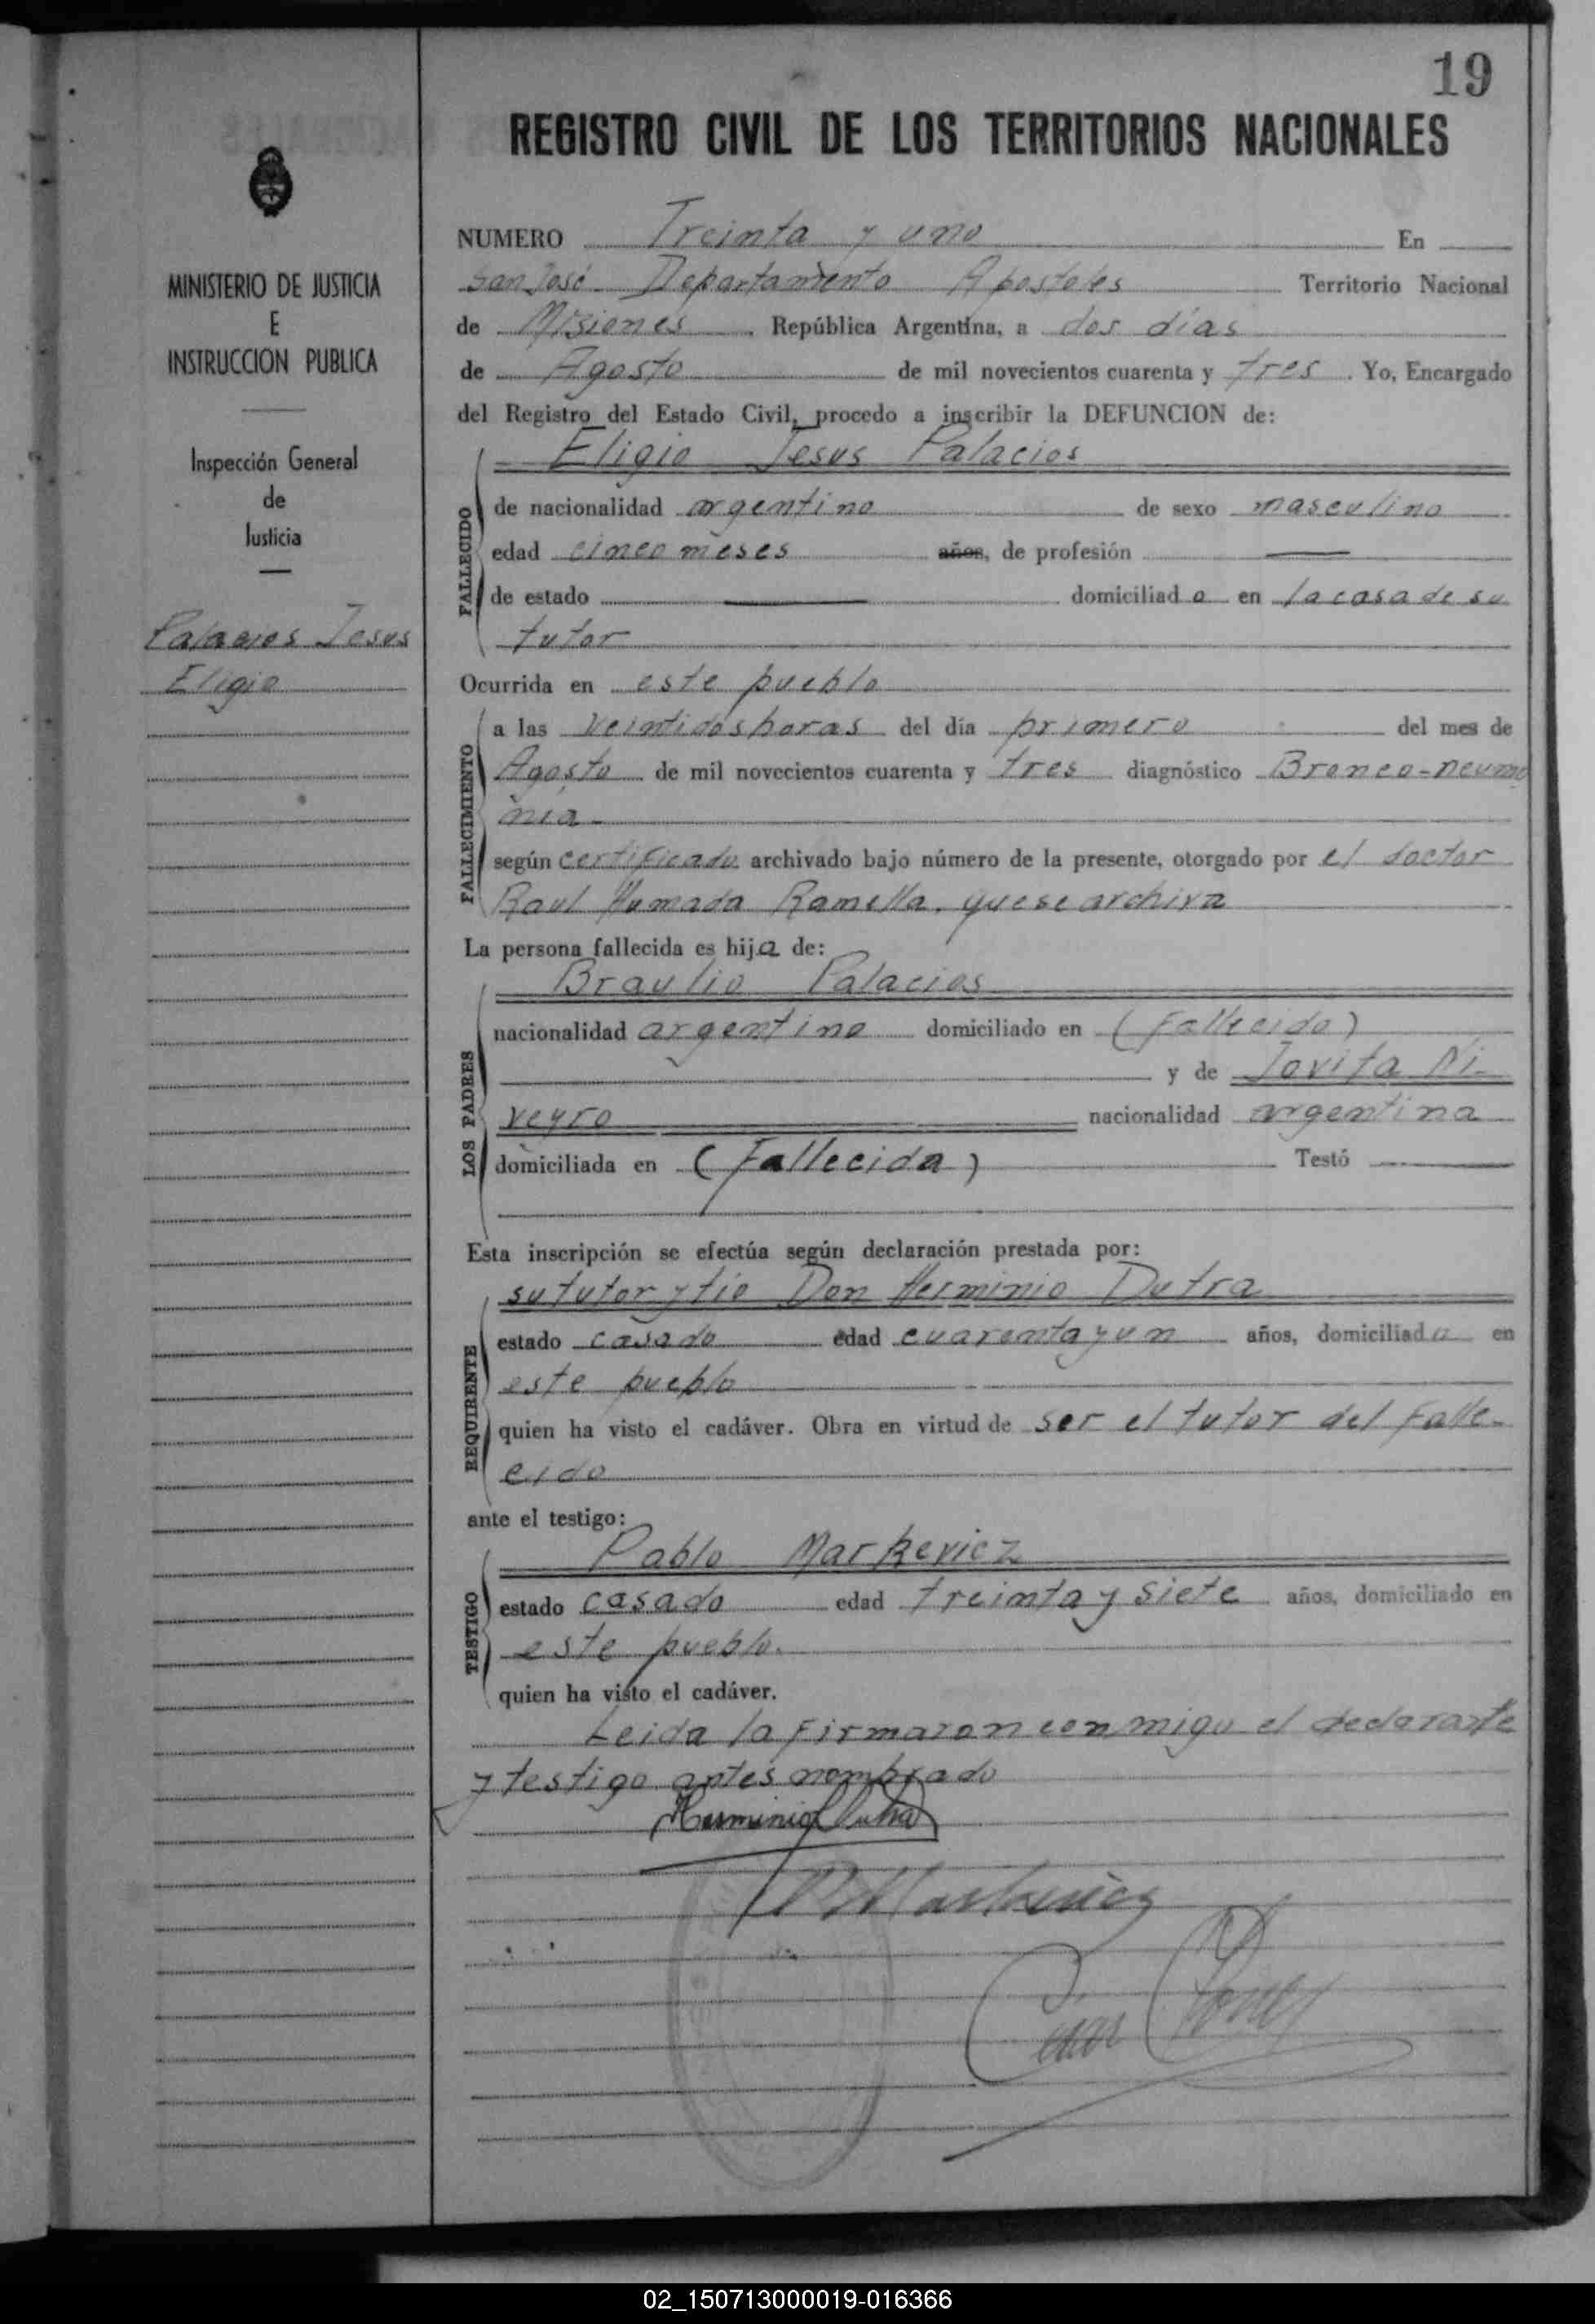 19
REGISTRO CIVIL DE LOS TERRITORIOS NACIONALES
MINISTERIO DE JUSTICIA
E
INSTRUCCION PUBLICA
Inspección General
de
Justicia
Palacios Jesus
Eligio
NUMERO Treinta y uno En
San José Departamento Apostoles Territorio Nacional
de Misiones República Argentina, a dos días
de Agosto de mil novecientos cuarenta y tres. Yo, Encargado
del Registro del Estado Civil, procedo a inscribir la DEFUNCION de:
Eligio Jesus Palacios
FALLECIDO
de nacionalidad argentino de sexo masculino
edad cinco meses años, de profesión —
de estado — domiciliado en la casa de su
tutor
Ocurrida en este pueblo
FALLECIMIENTO
a las veintidos horas del día primero del mes de
Agosto de mil novecientos cuarenta y tres diagnóstico Bronco-neumo
nia
según certificado archivado bajo número de la presente, otorgado por el doctor
Raul Humada Ramella, que se archiva
La persona fallecida es hijo de:
Braulio Palacios
LOS PADRES
nacionalidad argentino domiciliado en (Fallecido)
y de Jovita Ni-
veyro nacionalidad argentina
domiciliada en (Fallecida) Testó
Esta inscripción se efectúa según declaración prestada por:
su tutor y tío Don Herminio Dutra
REQUIRENTE
estado casado edad cuarenta y un años, domiciliado en
este pueblo
quien ha visto el cadáver. Obra en virtud de ser el tutor del Falle-
cido
ante el testigo:
Pablo Markevicz
TESTIGO
estado casado edad treinta y siete años, domiciliado en
este pueblo.
quien ha visto el cadáver.
Leida la Firmaron conmigo el declarante
y testigo antes nombrado
Herminio Dutra
P Markevicz
02_150713000019-016366